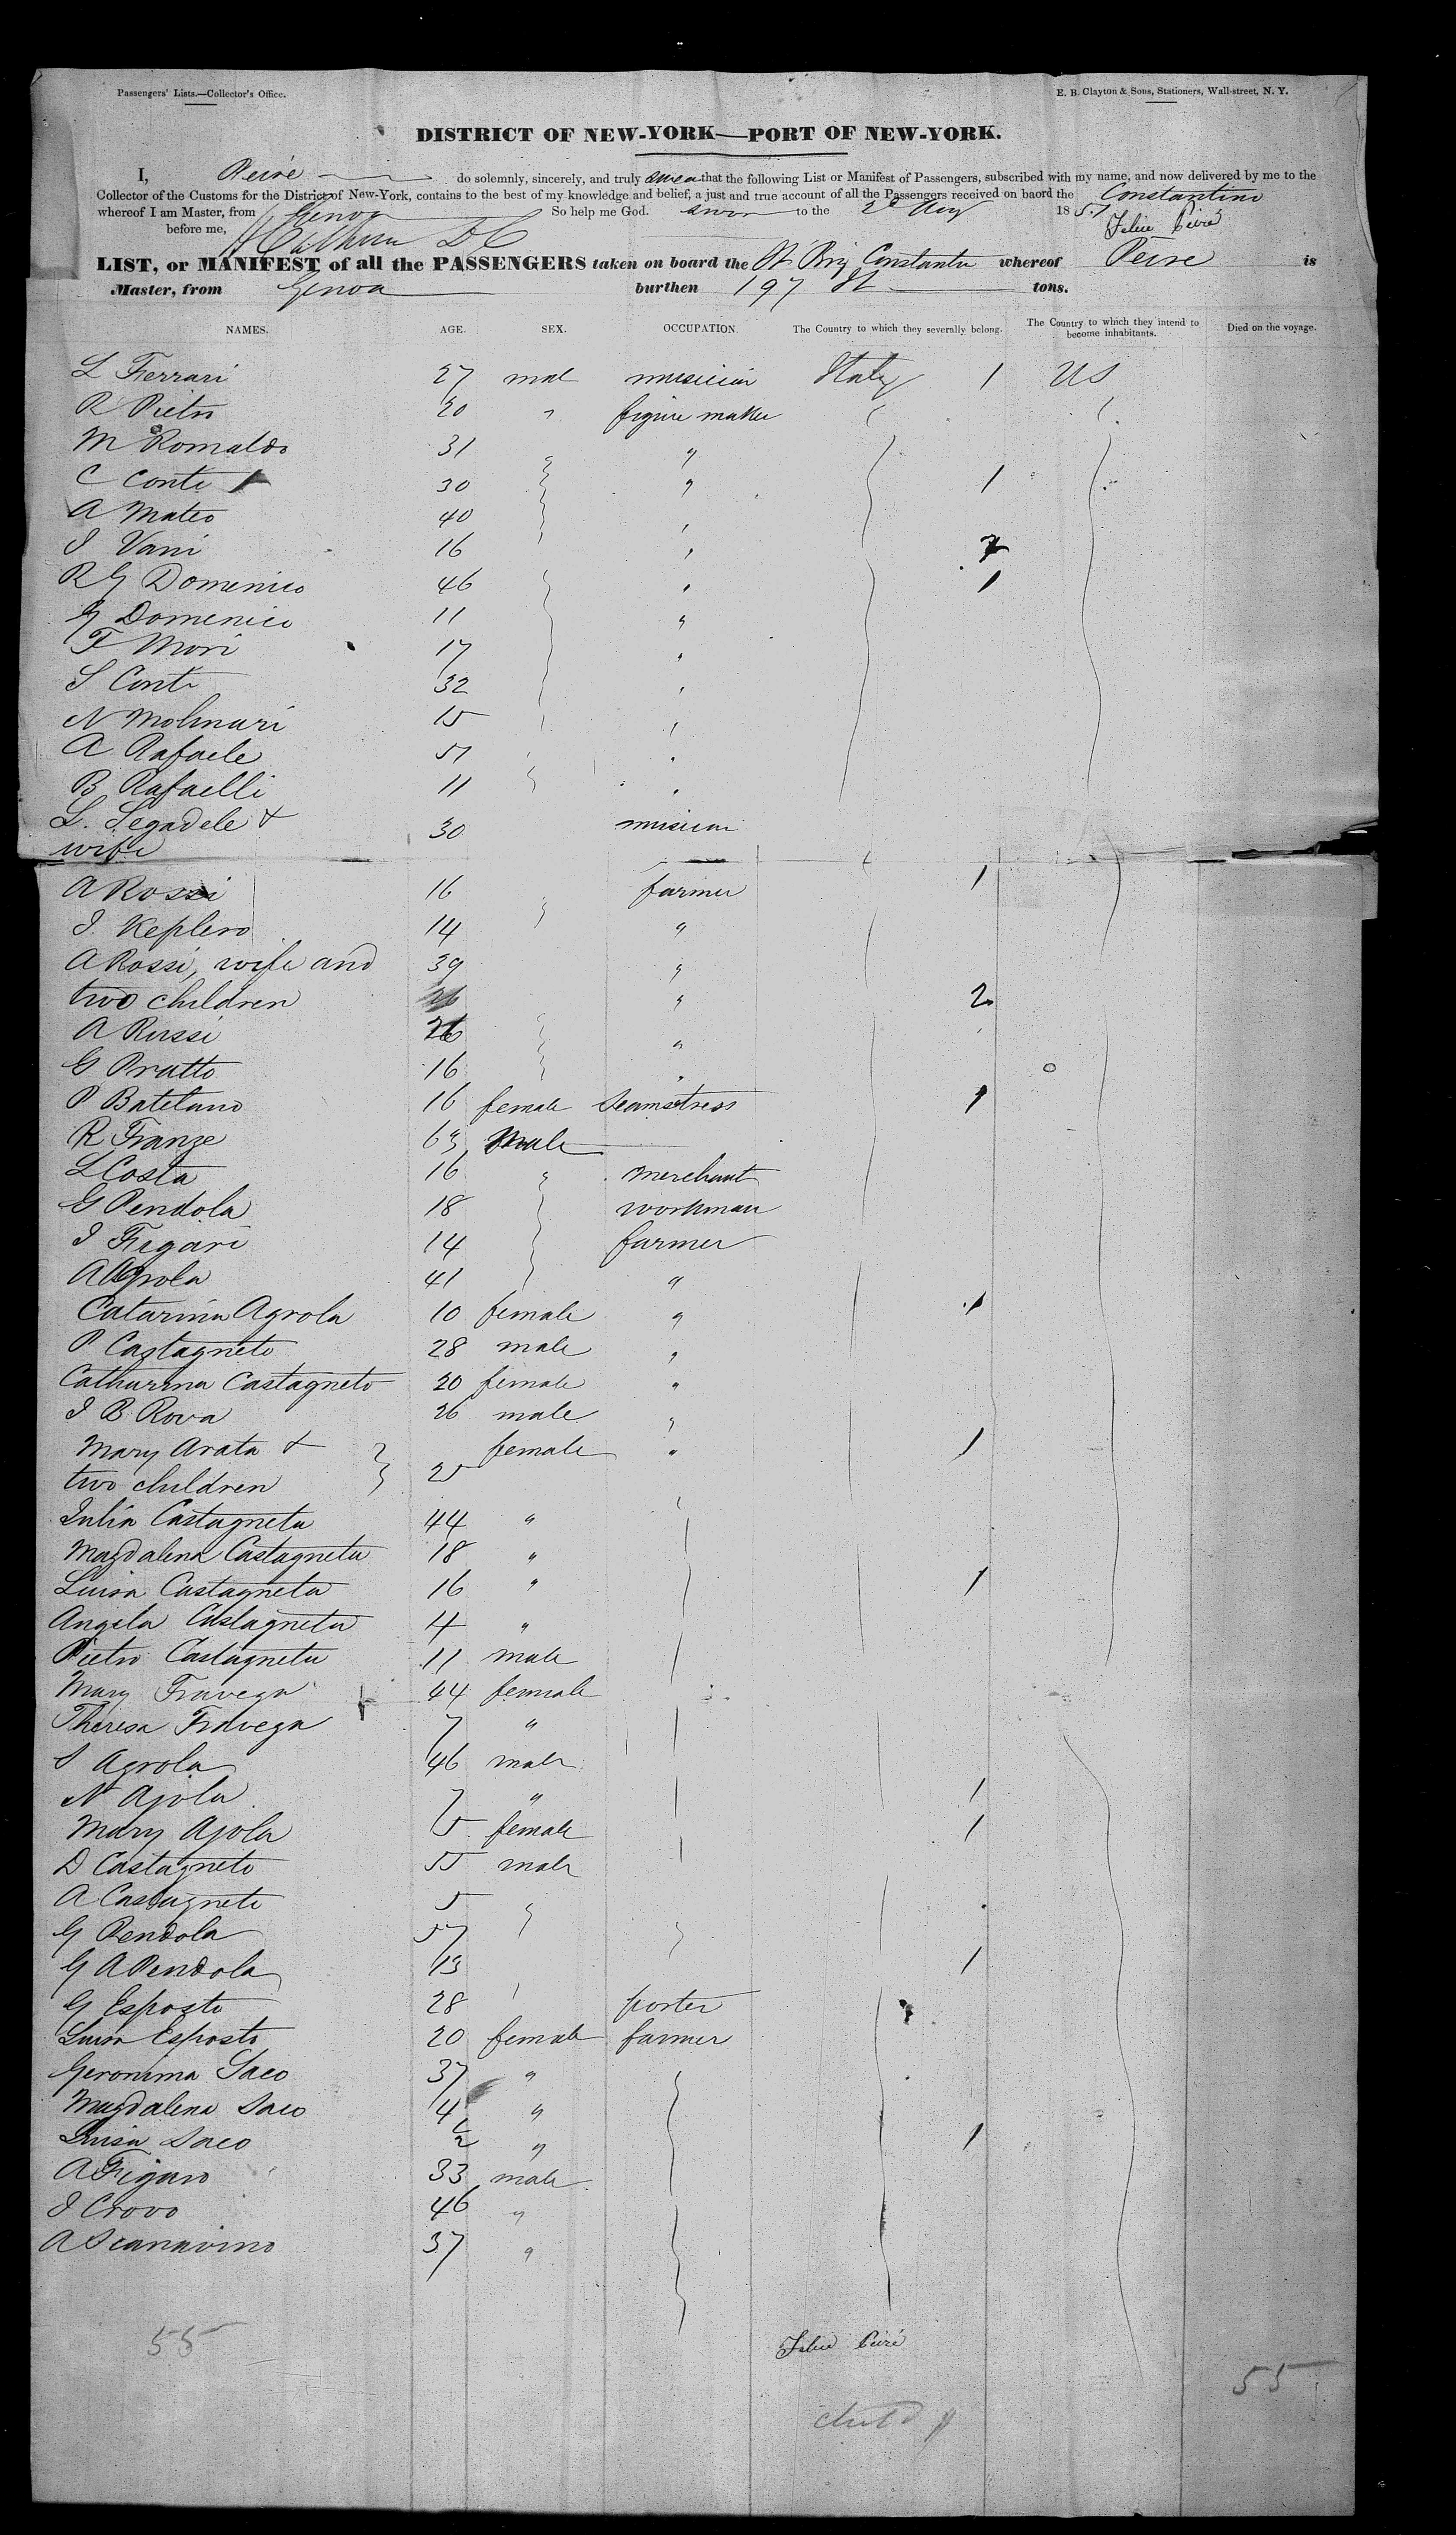 Passengers' Lists.—Collector's Office.
E. B. Clayton & Sons, Stationers, Wall-street, N. Y.
DISTRICT OF NEW-YORK—PORT OF NEW-YORK.
I, Peire do solemnly, sincerely, and truly swear that the following List or Manifest of Passengers, subscribed with my name, and now delivered by me to the
Collector of the Customs for the District of New-York, contains to the best of my knowledge and belief, a just and true account of all the Passengers received on baord the Constantino
whereof I am Master, from Genoa So help me God. sworn to the 2d Aug 1857
before me, DC
LIST, or MANIFEST of all the PASSENGERS taken on board the Brig Constantin whereof Peire is
Master, from Genoa burthen 197 tons.
NAMES. AGE. SEX. OCCUPATION. The Country to which they severally belong. The Country to which they intend to become inhabitants. Died on the voyage.
L Ferrari 27 mal musician Italy 1 US
R Pietro 20 " figure maker
M Romaldo 31 "
C Conti 30 " 1
A Mateo 40
I Vani 16
R G Domenico 46 1
G Domenico 11 "
F Mori 17
S Conti 32
N Molinari 15
A Rafaele 51
B Rafaelli 11
L. Segadele & 30 musician
wife
A Rossi 16 farmer 1
I Keplero 14 "
A Rossi, wife and 39 "
two children " 2
A Russi 26 "
G Pratto 16
P Batetano 16 female Seamstress 1
R Franze 63 Male
L Costa 16 " merchant
G Pendola 18 workman
I Figari 14 farmer
A Agrola 41 "
Catarina Agrola 10 female " 1
P Castagneto 28 male "
Catharina Castagneto 20 female "
I B Rova 26 male "
Mary Arata & female " 1
two children 25
Julia Castagneta 44 "
Magdalena Castagneta 18 "
Luisa Castagneta 16 " 1
Angela Castagneta 4 "
Pietro Castagneta 11 male
Mary Fravega 44 female
Theresa Fravega 7 "
S Agrola 46 male
N Ajola 7 " 1
Mary Ajola 5 female 1
D Castagneto 55 male
A Castagneto 5
G Pendola 57
G A Pendola 13 1
G Esposto 28 porter
Luisa Esposto 20 female farmer
Geronima Saco 37 "
Magdalena Saco 4 "
Luisa Saco 1/2 " 1
A Figaro 33 male
I Crovo 46 "
A Scanavino 37 "
55
55